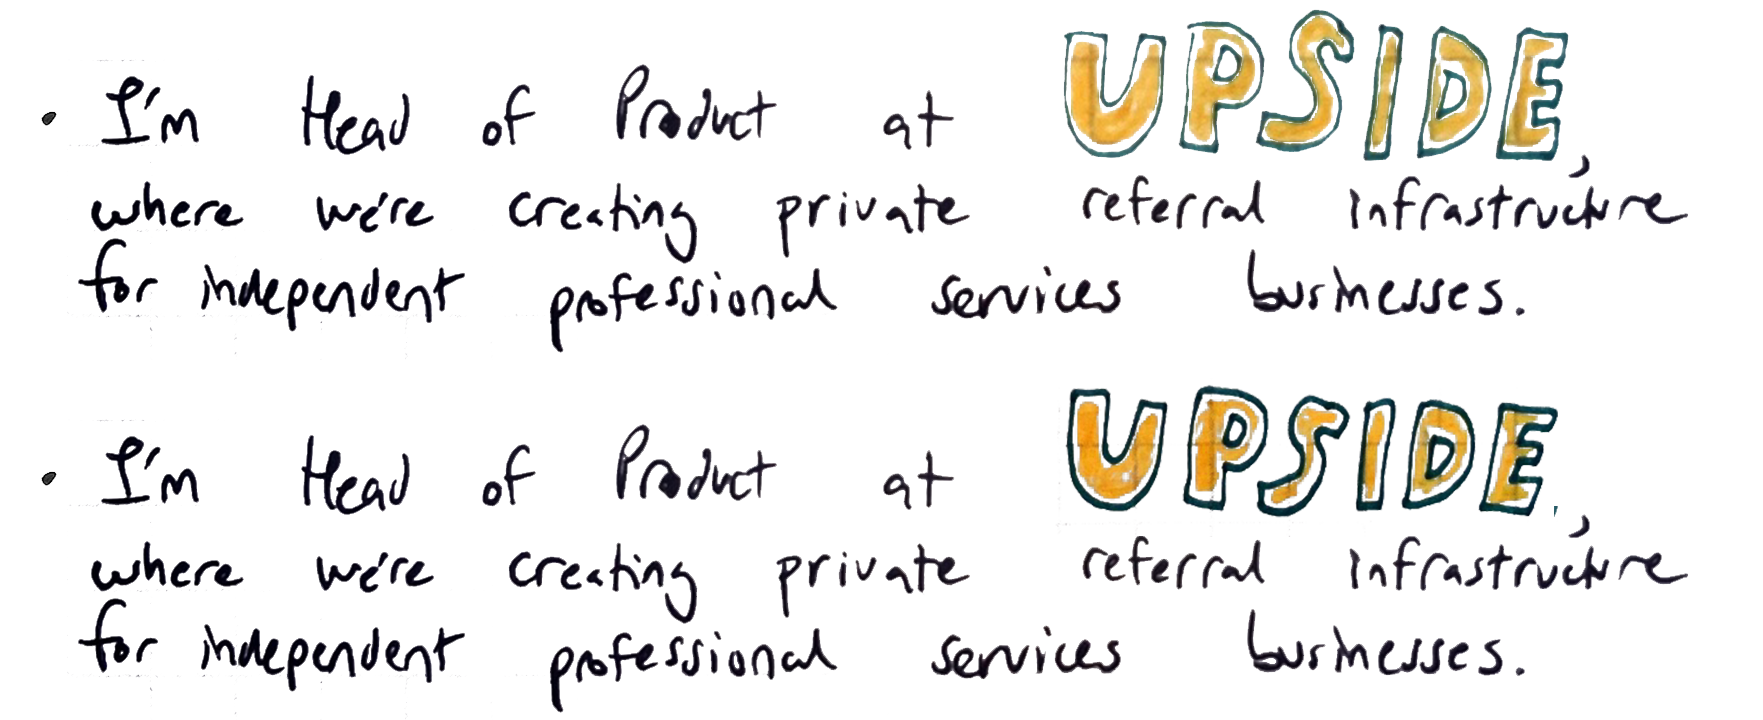 • I'm Head of Product at UPSIDE,
where we're creating private referral infrastructure
for independent professional services businesses.
• I'm Head of Product at UPSIDE,
where we're creating private referral infrastructure
for independent professional services businesses.